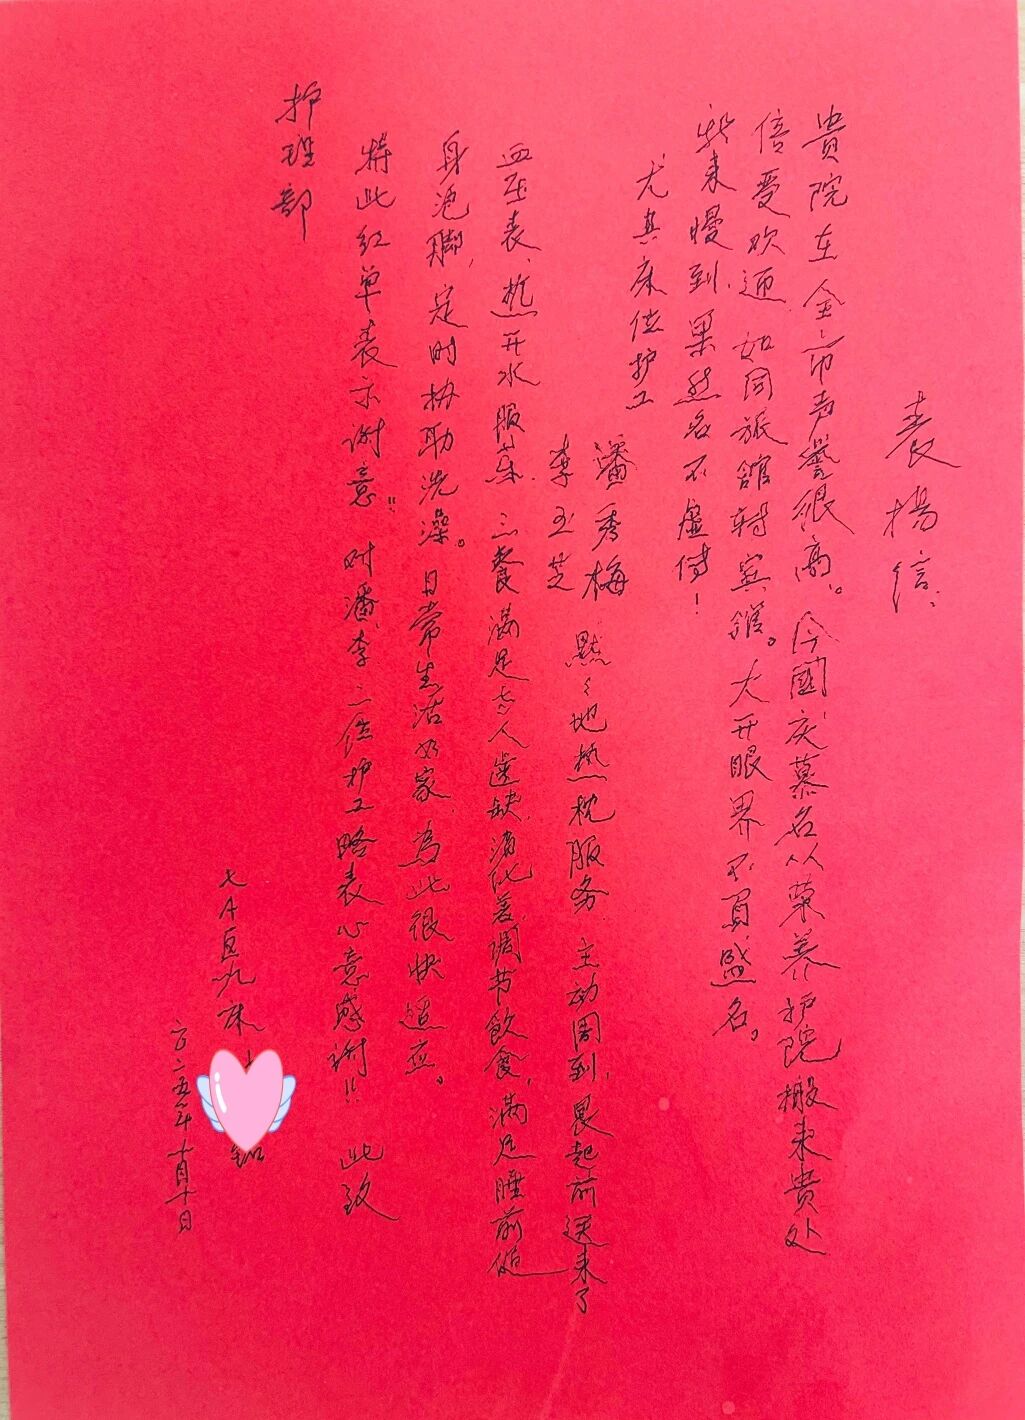 表揚信
貴院在全市声誉很高。今國庆慕名从荣养护院搬来貴处
倍受欢迎,如同旅館转宾館。大开眼界不負盛名。
我来慢到,果然名不虚传!
尤其床位护工
潘秀梅
李玉芝
默々地热忱服务,主动周到,晨起前送来了
血压表、热开水服药,三餐滿足老人齒缺,消化差,调节飲食,滿足睡前
身泡脚,定时协助洗澡。日常生活如家,為此很快适应。
特此红单表示谢意!!对潘、李二位护工略表心意感谢!! 此致
护理部
七A区九床
二〇二五年十月十日